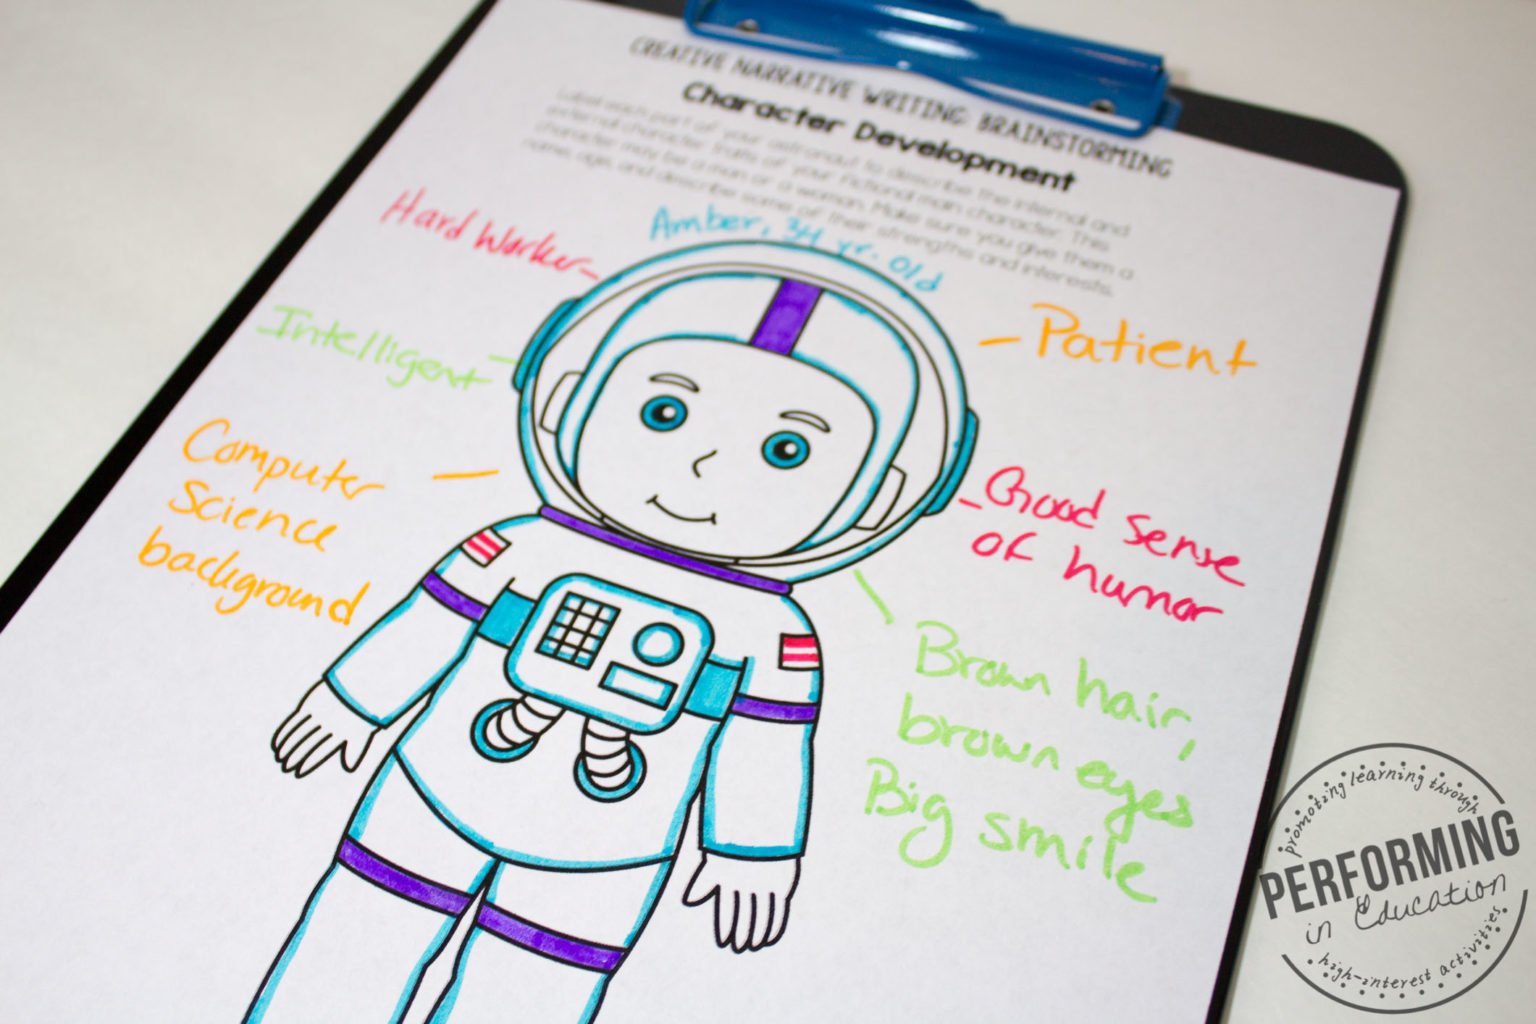 CREATIVE NARRATIVE WRITING: BRAINSTORMING
Character Development
Label each part of your astronaut to describe the internal and
external character traits of your fictional main character. This
character may be a man or a woman. Make sure you give them a
name, age, and describe some of their strengths and interests.
Amber, 34 yr. old
Hard Worker
Intelligent
Computer
Science
background
Patient
Good sense
of humor
Brown hair,
brown eyes
Big smile
promoting learning through
PERFORMING
in Education
high-interest activities